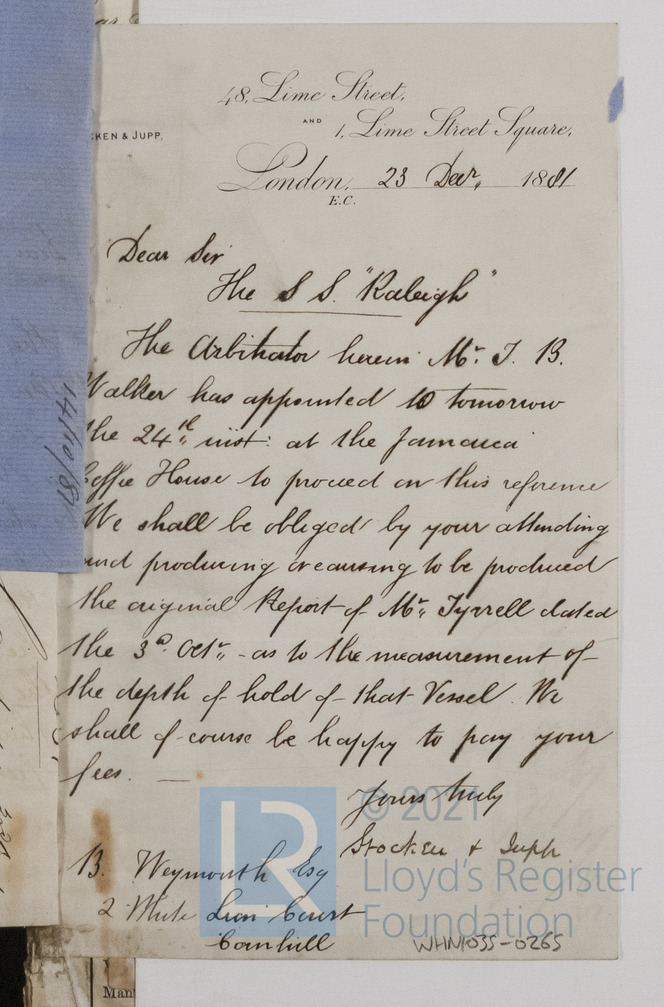 48, Lime Street,
AND
1, Lime Street Square,
CKEN & JUPP,
London, 23 Decr, 1881
E.C.
Dear Sir
The S S. "Raleigh"
The Arbitrator herein Mr. T. B.
Walker has appointed 10 tomorrow
the 24th inst: at the Jamaica
Coffee House to proceed on this reference
We shall be obliged by your attending
and producing or causing to be produced
the original Report of Mr. Tyrrell dated
the 3d. Octr. - as to the measurement of
the depth of hold of that Vessel. We
shall of course be happy to pay your
fees. —
Yours truly
Stocken & Jupp
B. Weymouth Esq
2 White Lion Court
Cornhill
14/10/81
© 2021
LR
Lloyd's Register
Foundation
WHN1035-0265
Man